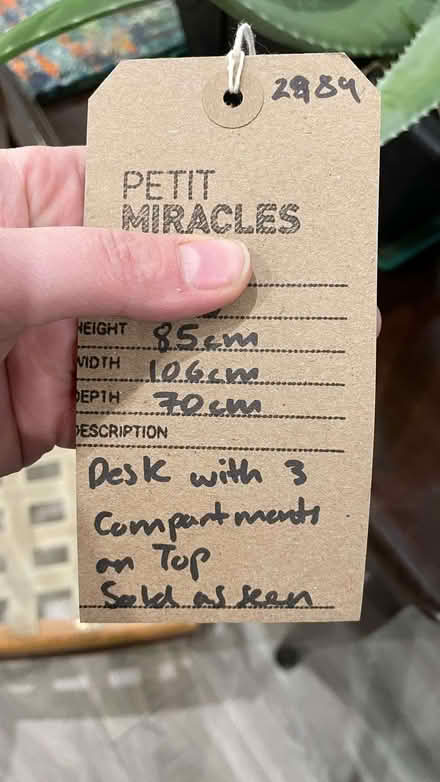 PETIT
MIRACLES
HEIGHT 85cm
WIDTH 106cm
DEPTH 70cm
DESCRIPTION
Desk with 3
Compartments
on Top
Sold as seen